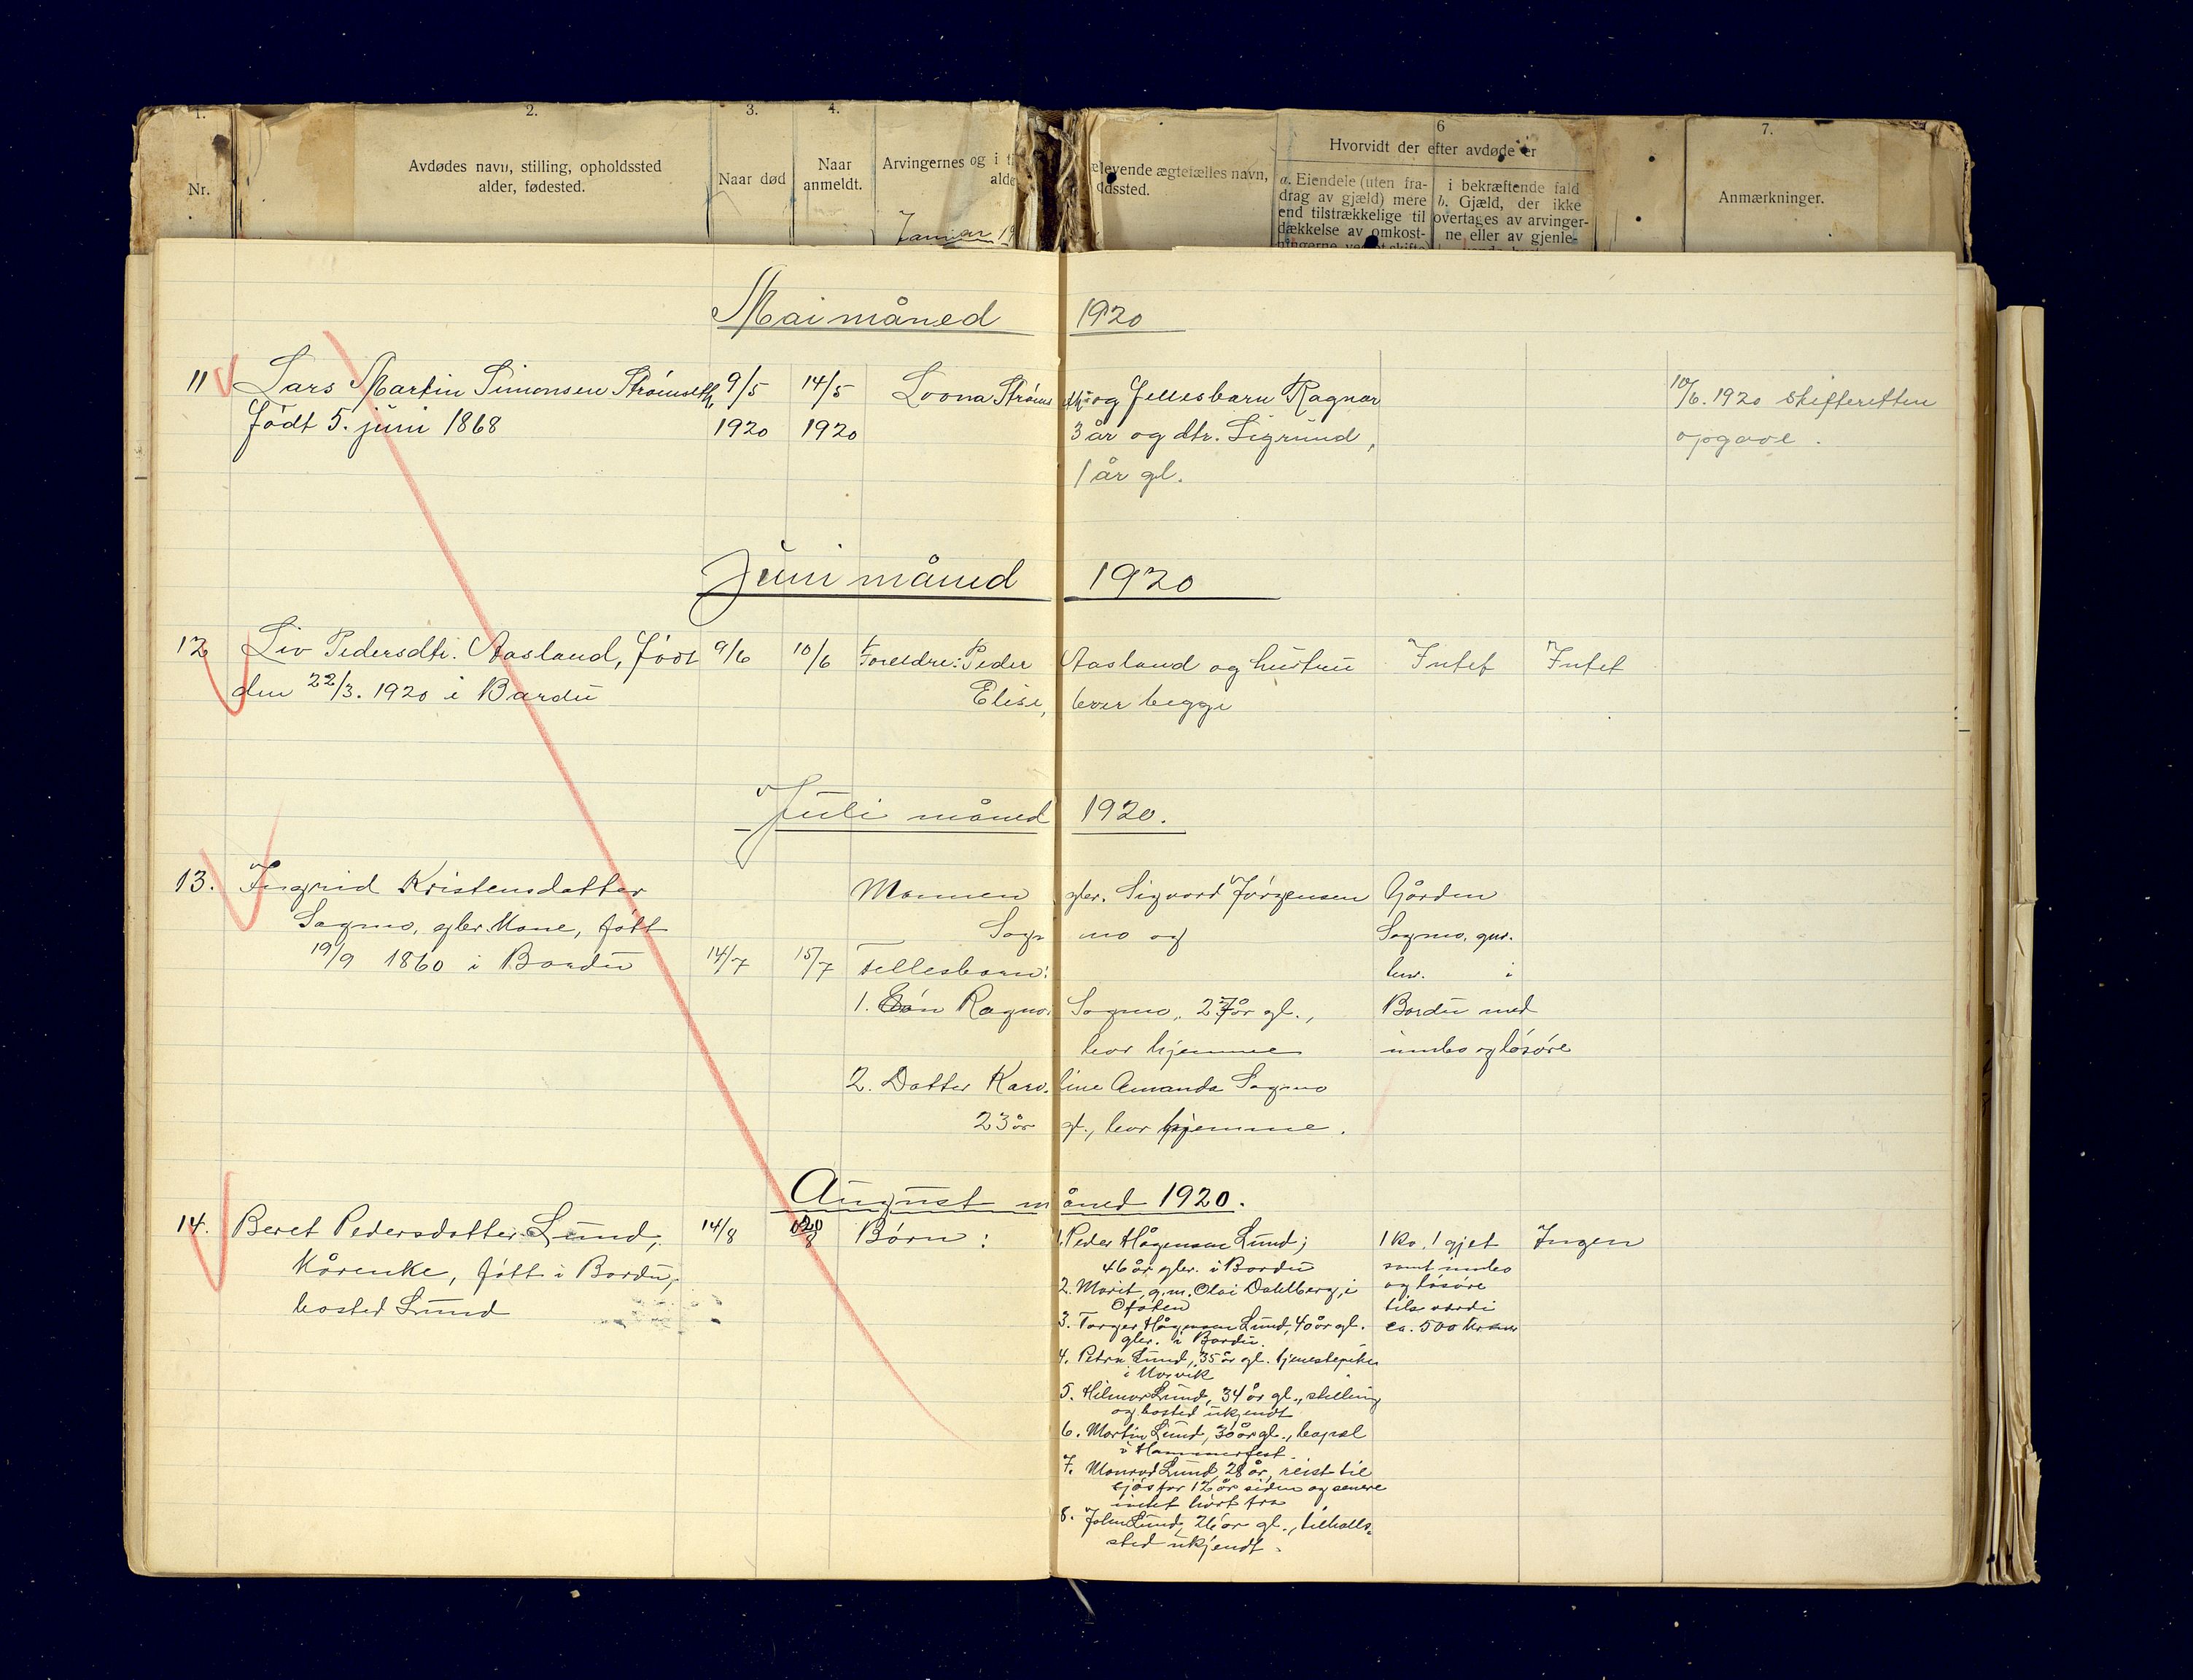 1.
2.
3.
4.
6
7.
Nr.
Avdødes navn, stilling, opholdssted
alder, fødested.
Naar død
Naar
anmeldt.
Arvingernes og i
alde
levende ægtefælles navn,
dssted.
Hvorvidt der efter avdøde er
a. Eiendele (uten fra-
drag av gjæld) mere
end tilstrækkelige til
dækkelse av omkost-
ningerne ved et skifte
i bekræftende fald
b. Gjæld, der ikke
overtages av arvinger-
ne eller av gjenle-
Anmærkninger.
Januar 19
Mai måned 1920
11 Lars Martin Simonsen Strømseth, 9/5 14/5 Lovna Strømseth og fellesbarn Ragnar 10/6. 1920 skifteretten
født 5. juni 1868 1920 1920 3 år og dtr. Sigrund, opgave.
1 år gl.
Juni måned 1920
12 Liv Pedersdtr. Aasland, født 9/6 10/6 Foreldre: Peder Aasland og hustru Intet Intet
den 22/3. 1920 i Bardu Elise, lever begge
Juli måned 1920.
13. Ingrid Kristensdatter Mannen gbr. Sigvard Jørgensen Gården
Sagmo, gbr. kone, født Sagmo og Sagmo, gnr.
19/9 1860 i Bardu 14/7 15/7 Fellesbarn: bnr. i
1. Søn Ragnar Sagmo, 27 år gl., Bardu med
bor hjemme innbo og løsøre
2. Datter Karoline Amanda Sagmo
23 år gl., bor hjemme.
August måned 1920.
14. Beret Pedersdatter Lund, 14/8 20/8 Børn: 1. Peder Hågensen Lund, 1 ko, 1 gjet Ingen
Kårenke, født i Bardu, 46 år gbr. i Bardu samt innbo
bosted Lund 2. Marit, g.m. Olai Dahlberg, i og løsøre
Ofoten til værdi
3. Torger Hågensen Lund, 40 år gl. ca. 500 kroner
gbr. i Bardu.
4. Petra Lund, 35 år gl. tjenestepike
i Narvik
5. Hilmar Lund, 34 år gl., stilling
og bosted ukjendt
6. Martin Lund, 30 år gl., bopæl
i Hammerfest.
7. Monrad Lund, 28 år, reist til
sjøs for 12 år siden og senere
intet hørt fra
8. John Lund, 26 år gl., tilholds-
sted ukjendt.